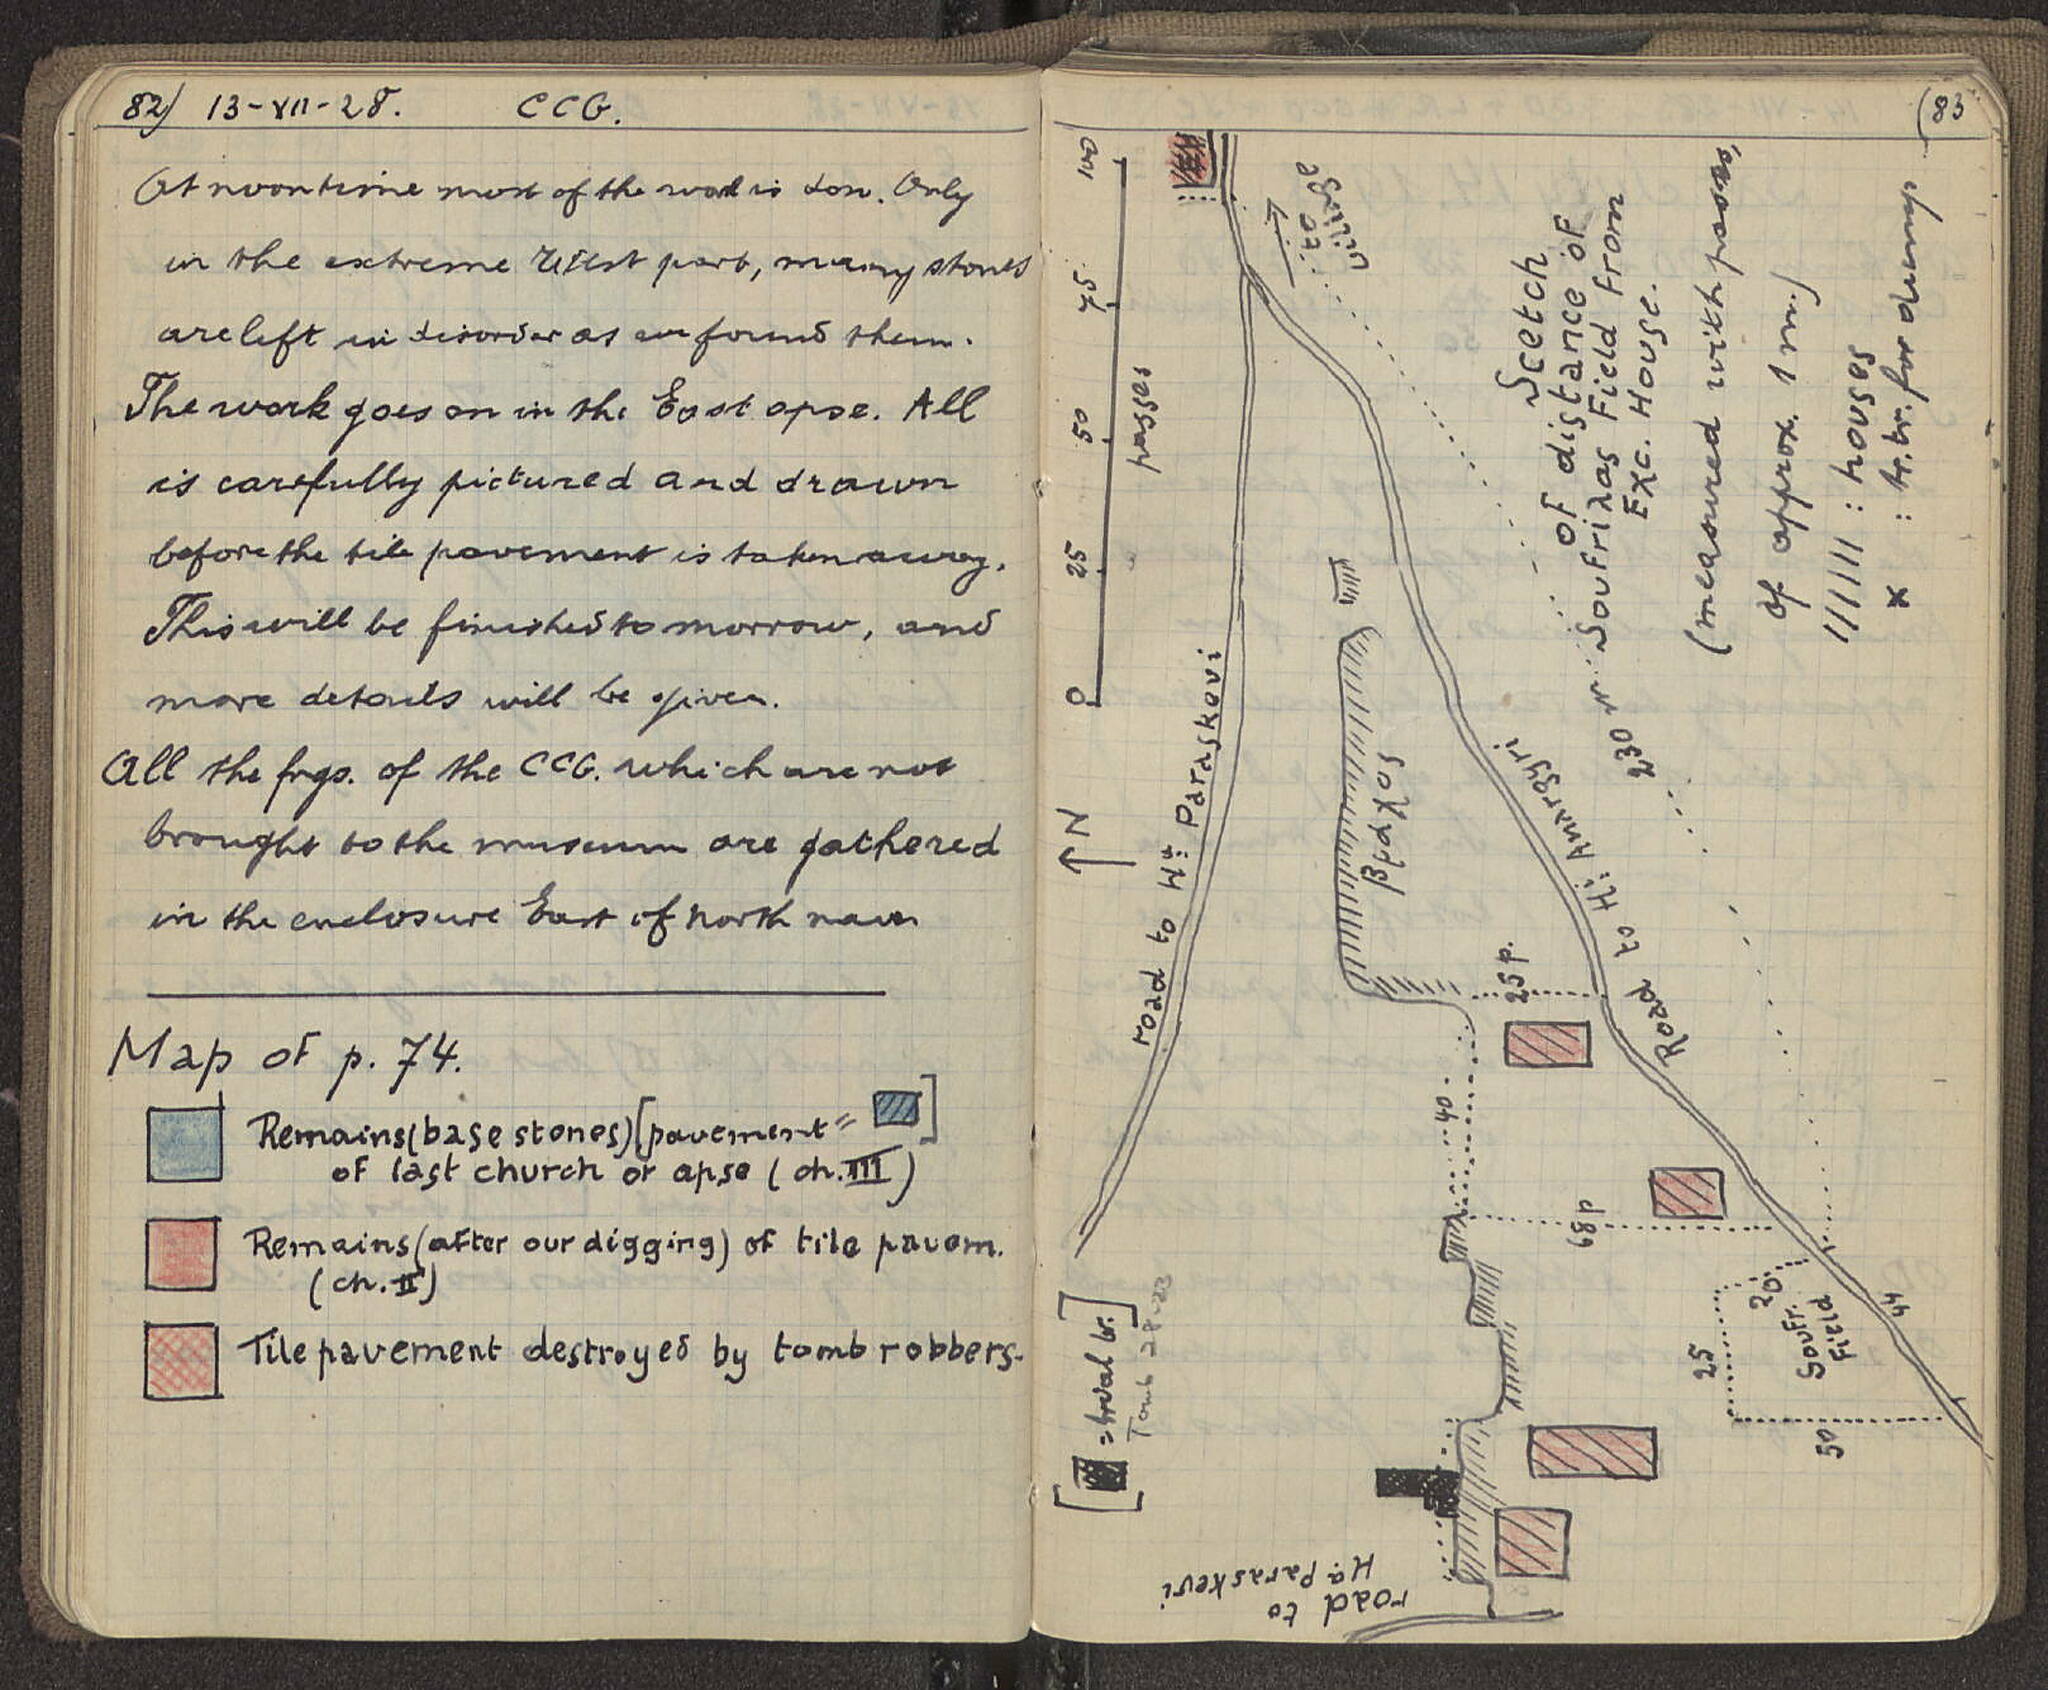 82) 13-VII-28. CCG.
At noontime most of the wall is don. Only
in the extreme West part, many stones
are left in disorder as we found them.
The work goes on in the East apse. All
is carefully pictured and drawn
before the tile pavement is taken away.
This will be finished tomorrow, and
more details will be given.
All the frgs. of the CCG. which are not
brought to the museum are gathered
in the enclosure East of north nave
Map of p. 74.
Remains (base stones) [pavement = ]
of last church or apse (ch. III)
Remains (after our digging) of tile pavem.
(ch. II)
Tile pavement destroyed by tomb robbers.
(83
Scetch
of distance of
Soufrilas Field from
Exc. House.
(measured with passes,
of approx. 1 m.)
////// : houses
x : tr. tr. for dump
0 25 50 75 100
passes
N
to
village
road to Ha: Paraskevi
βράχος
Road to Hi: Anargyri
230
25 p.
40
68 p
20
25
Soufr.
Field
44
50
[ = trial tr.]
Tomb
road to
Ha. Paraskevi